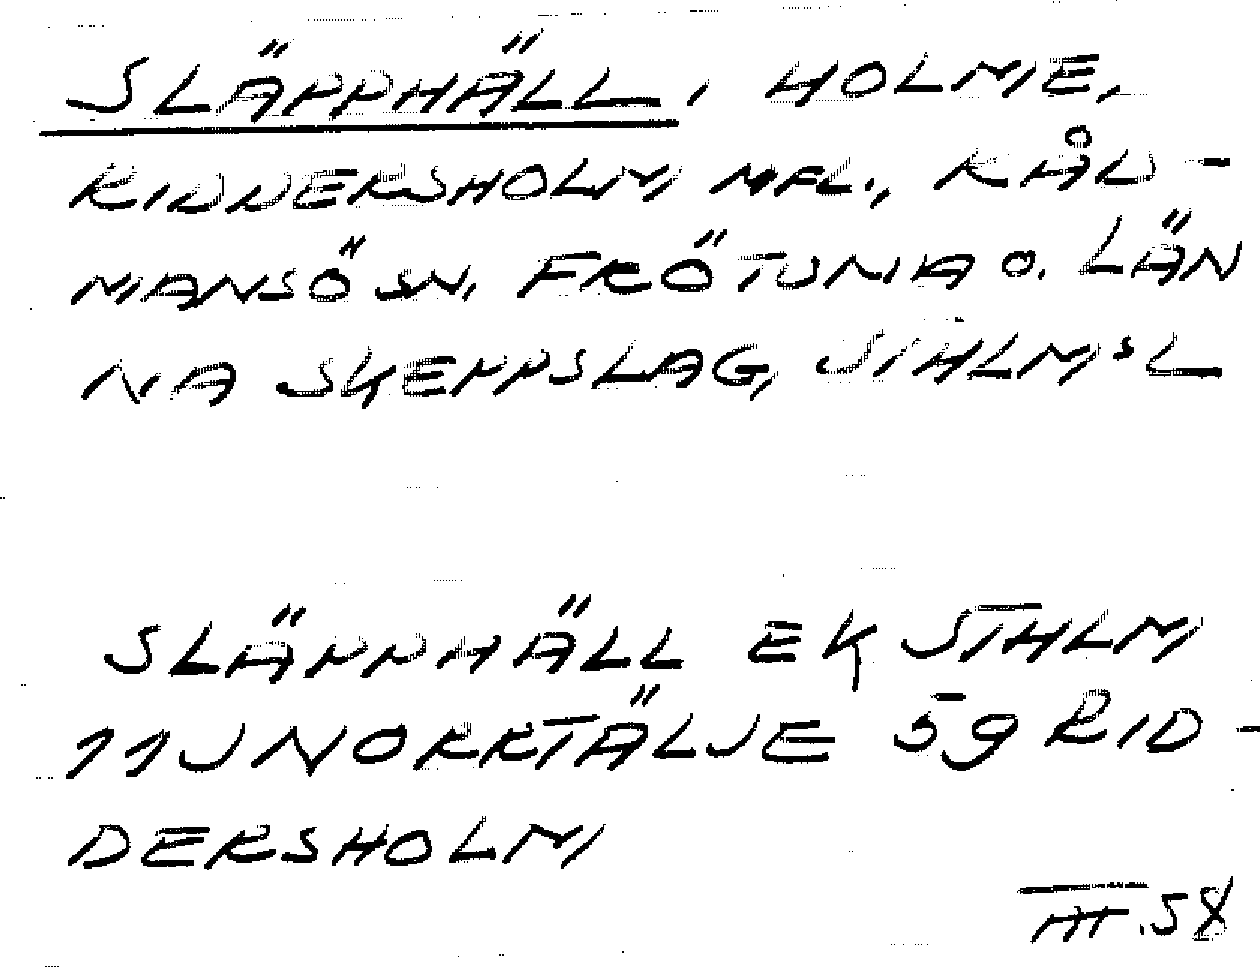 SLÄPPHÄLL, HOLME,
RIDDERSHOLM MFL., RÅD-
MANSÖ SN, FRÖTUNA O. LÄN
NA SKEPPSLAG, STHLMSL
SLÄPPHÄLL EK STHLM
11J NORRTÄLJE 59 RID-
DERSHOLM
III.58